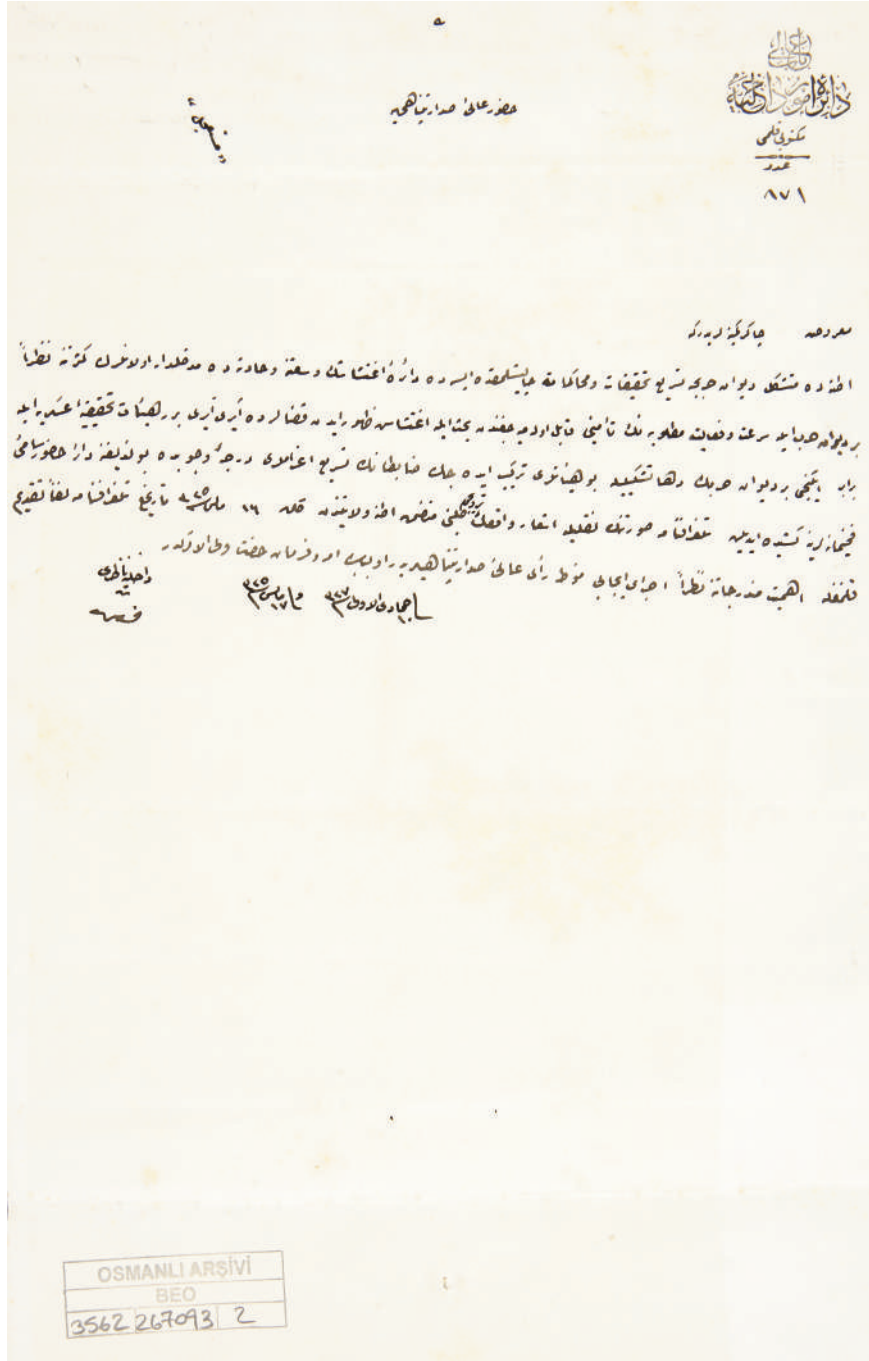 باب عالی
دائرۀ امور داخلیه
مکتوبی قلمی
عدد
٨٧١
حضور عالئ صدارتپناهی یه
معروض چاکر کمینه لریدر که
اطنه ده متشکل دیوان حربجه تسریع تحقیقات و محاکماته چالیشلمقده ایسه ده دائرۀ اغتشاشك وسعتنه و حادثه ده مدخلدار اولانلرك کثرتنه نظراً
بر دیوان حرب ایله سرعت و فعالیت مطلوبه نك تأمینی قابل اوله میه جغندن بحث ایله اغتشاش ظهور ایدن قضالرده آیری آیری بر هیئات تحقیقیۀ عسکریه ایله
برابر ایکنجی بر دیوان حربك دها تشکیلیله بو هیئتلری ترکیب ایده جك ضابطانك تسریع اعزاملری درجۀ وجوبده بولندیغنه دائر حضور سامئ
فخیمانه لرینه کشیده ایدیلن تلغرافنامه صورتنك نقلیله اشعار واقعك ترویجی طلبنی متضمن اطنه ولایتندن کلن ١٦ مایس ٣٢٥ تاریخلی تلغرافنامه لفاً تقدیم
قلنمغله اهمیت مندرجاته نظراً اجرای ایجابی منوط رأی عالئ صدارتپناهیلریدر اول بابده امر و فرمان حضرت ولی الامرکدر
فی ١٠ جمادی الاولی ٣٢٧ فی ١٧ مایس ٣٢٥
داخلیه ناظری
OSMANLI ARŞİVİ
BEO
3562 267093 2